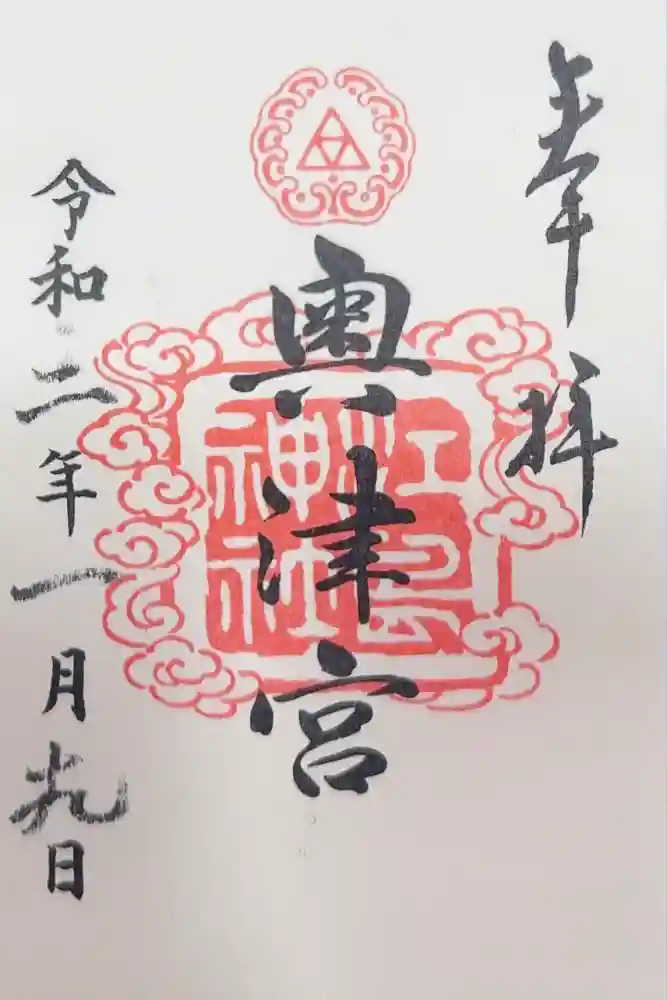 奉拝
奥津宮
江島
神社
令和二年一月九日